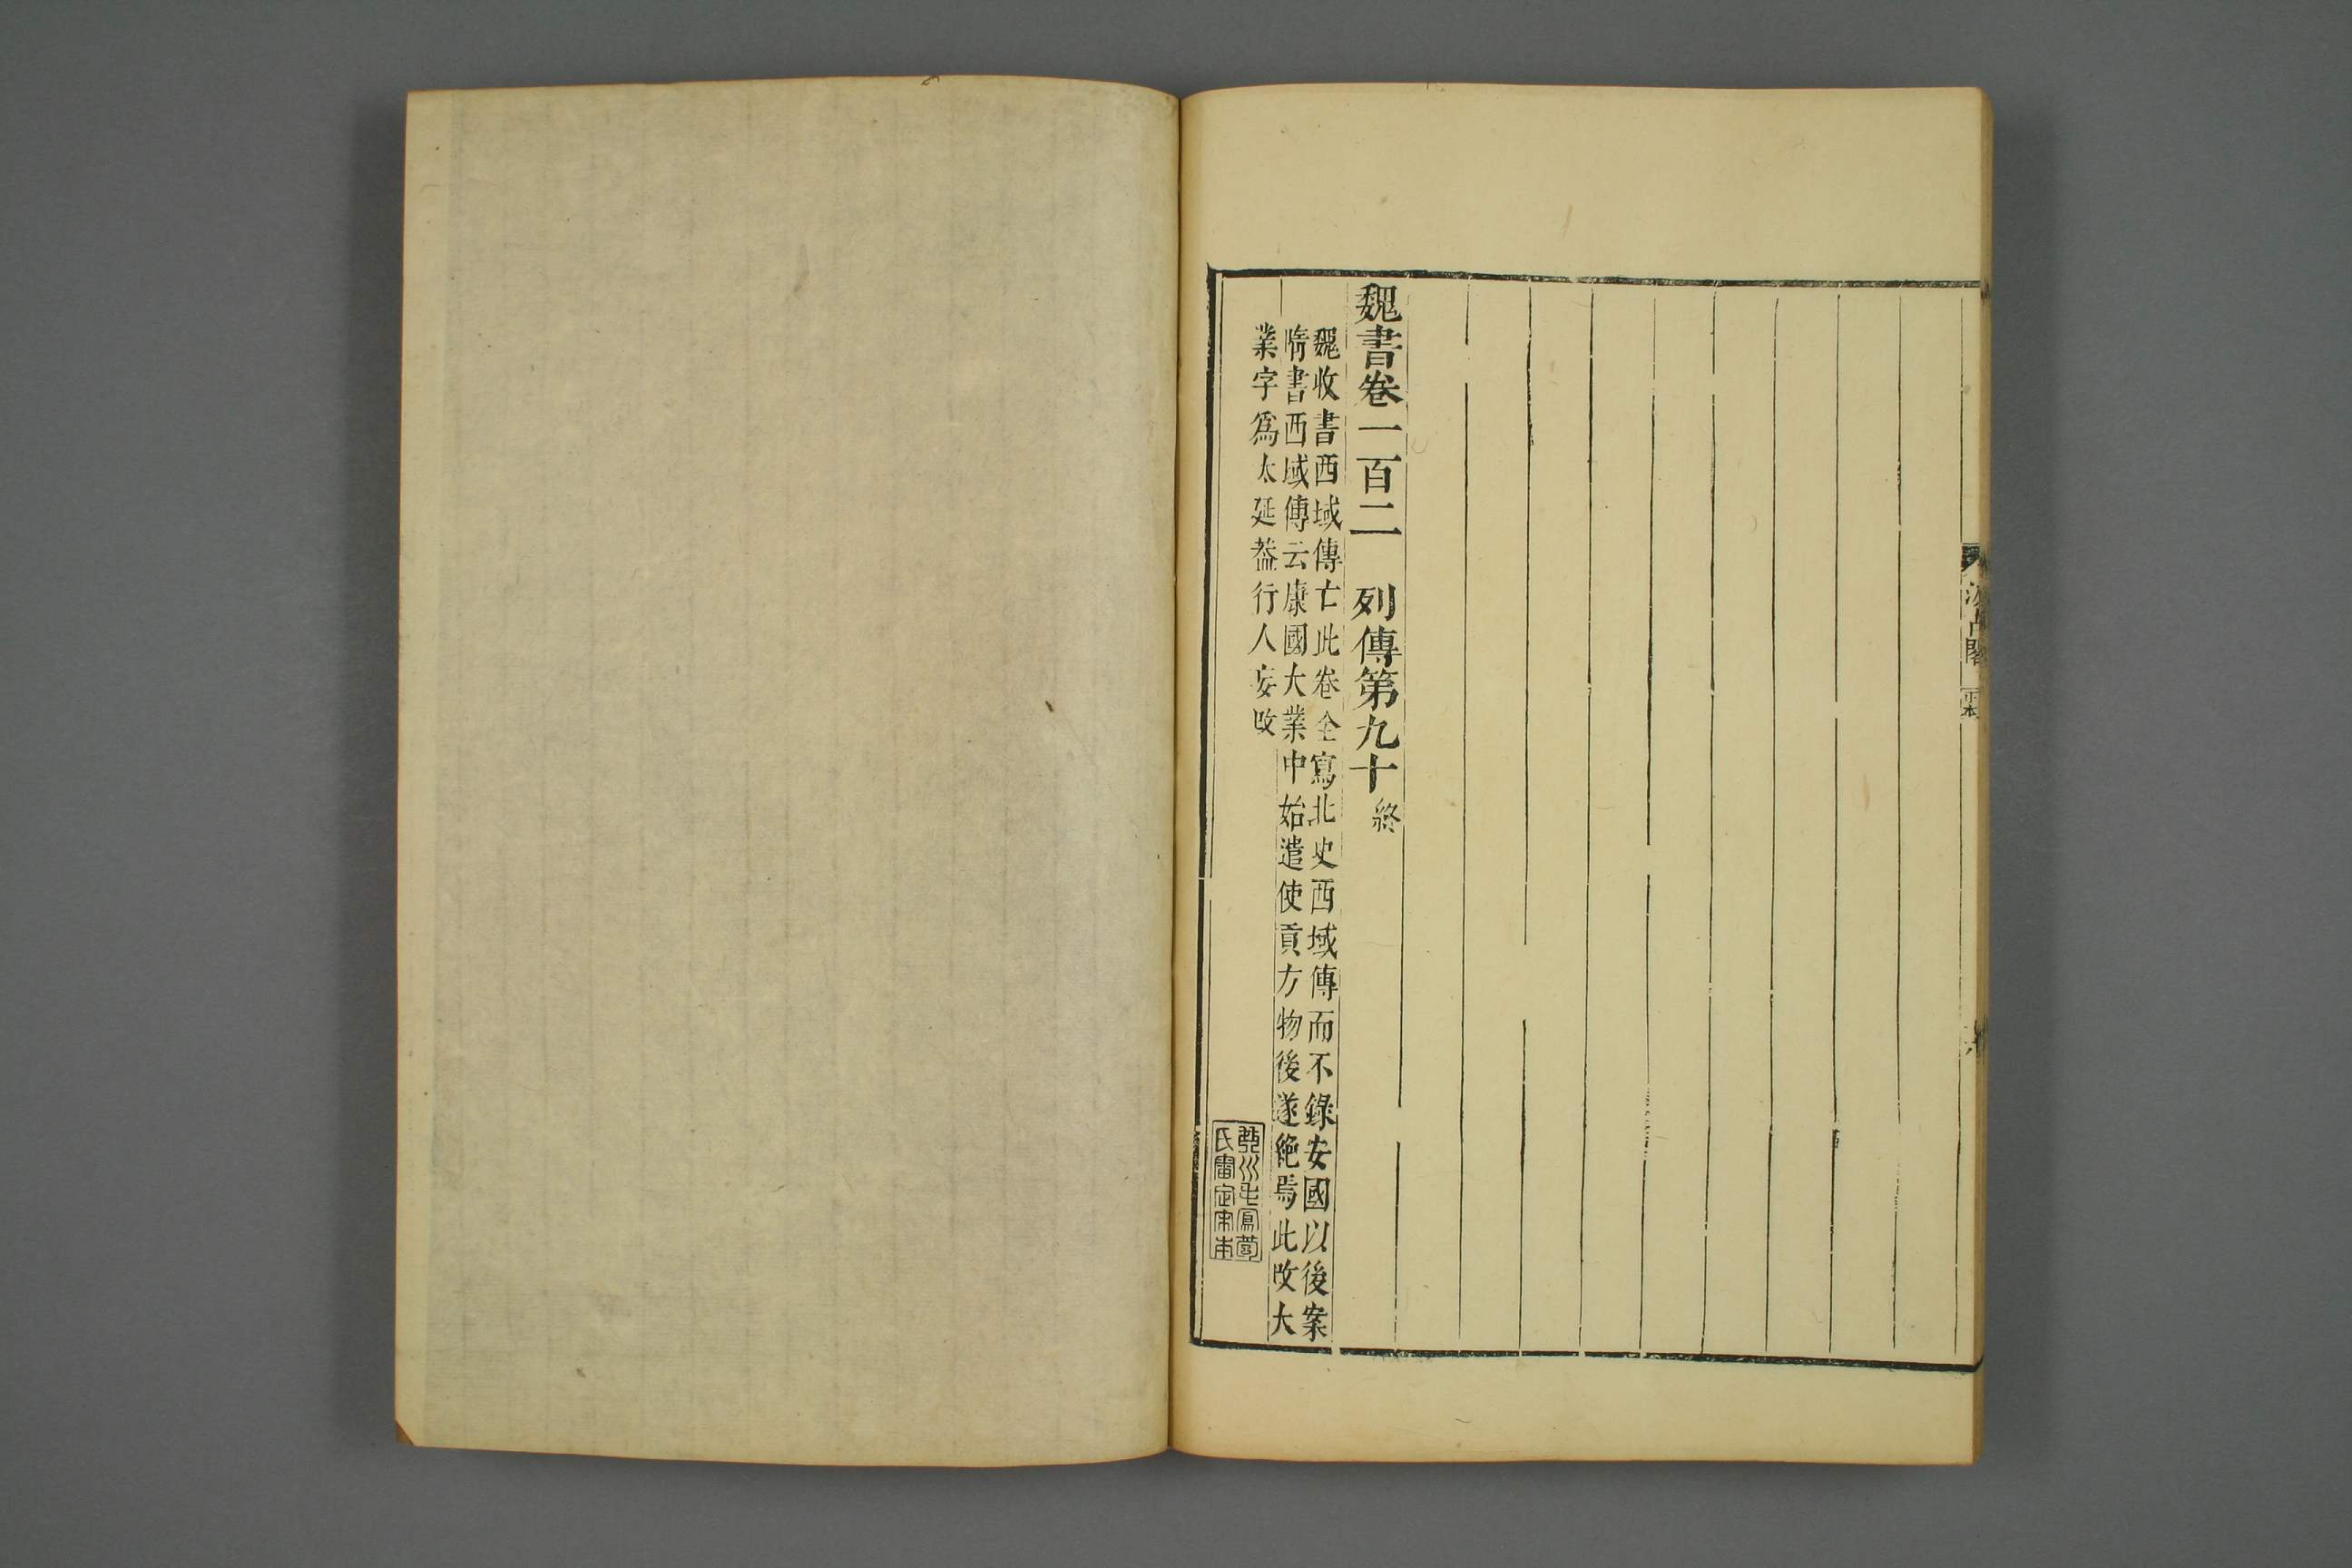 魏書卷一百二　列傳第九十終
魏收書西域傳亡此卷全寫北史西域傳而不錄安國以後案
隋書西域傳云康國大業中始遣使貢方物後遂絶焉此改大
業字爲太延葢行人妄改
氏審定宋本
汲古閣